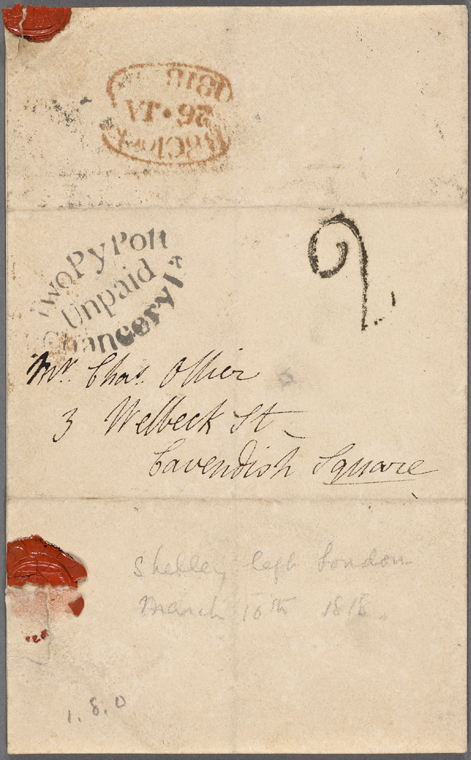 8 o'Clock
26 • JA
1818
Two Py Post
Unpaid
Chancery L
2
Mr. Chas. Ollier
3 Welbeck St
Cavendish Square
Shelley left London
March 10th 1818.
1.8.0